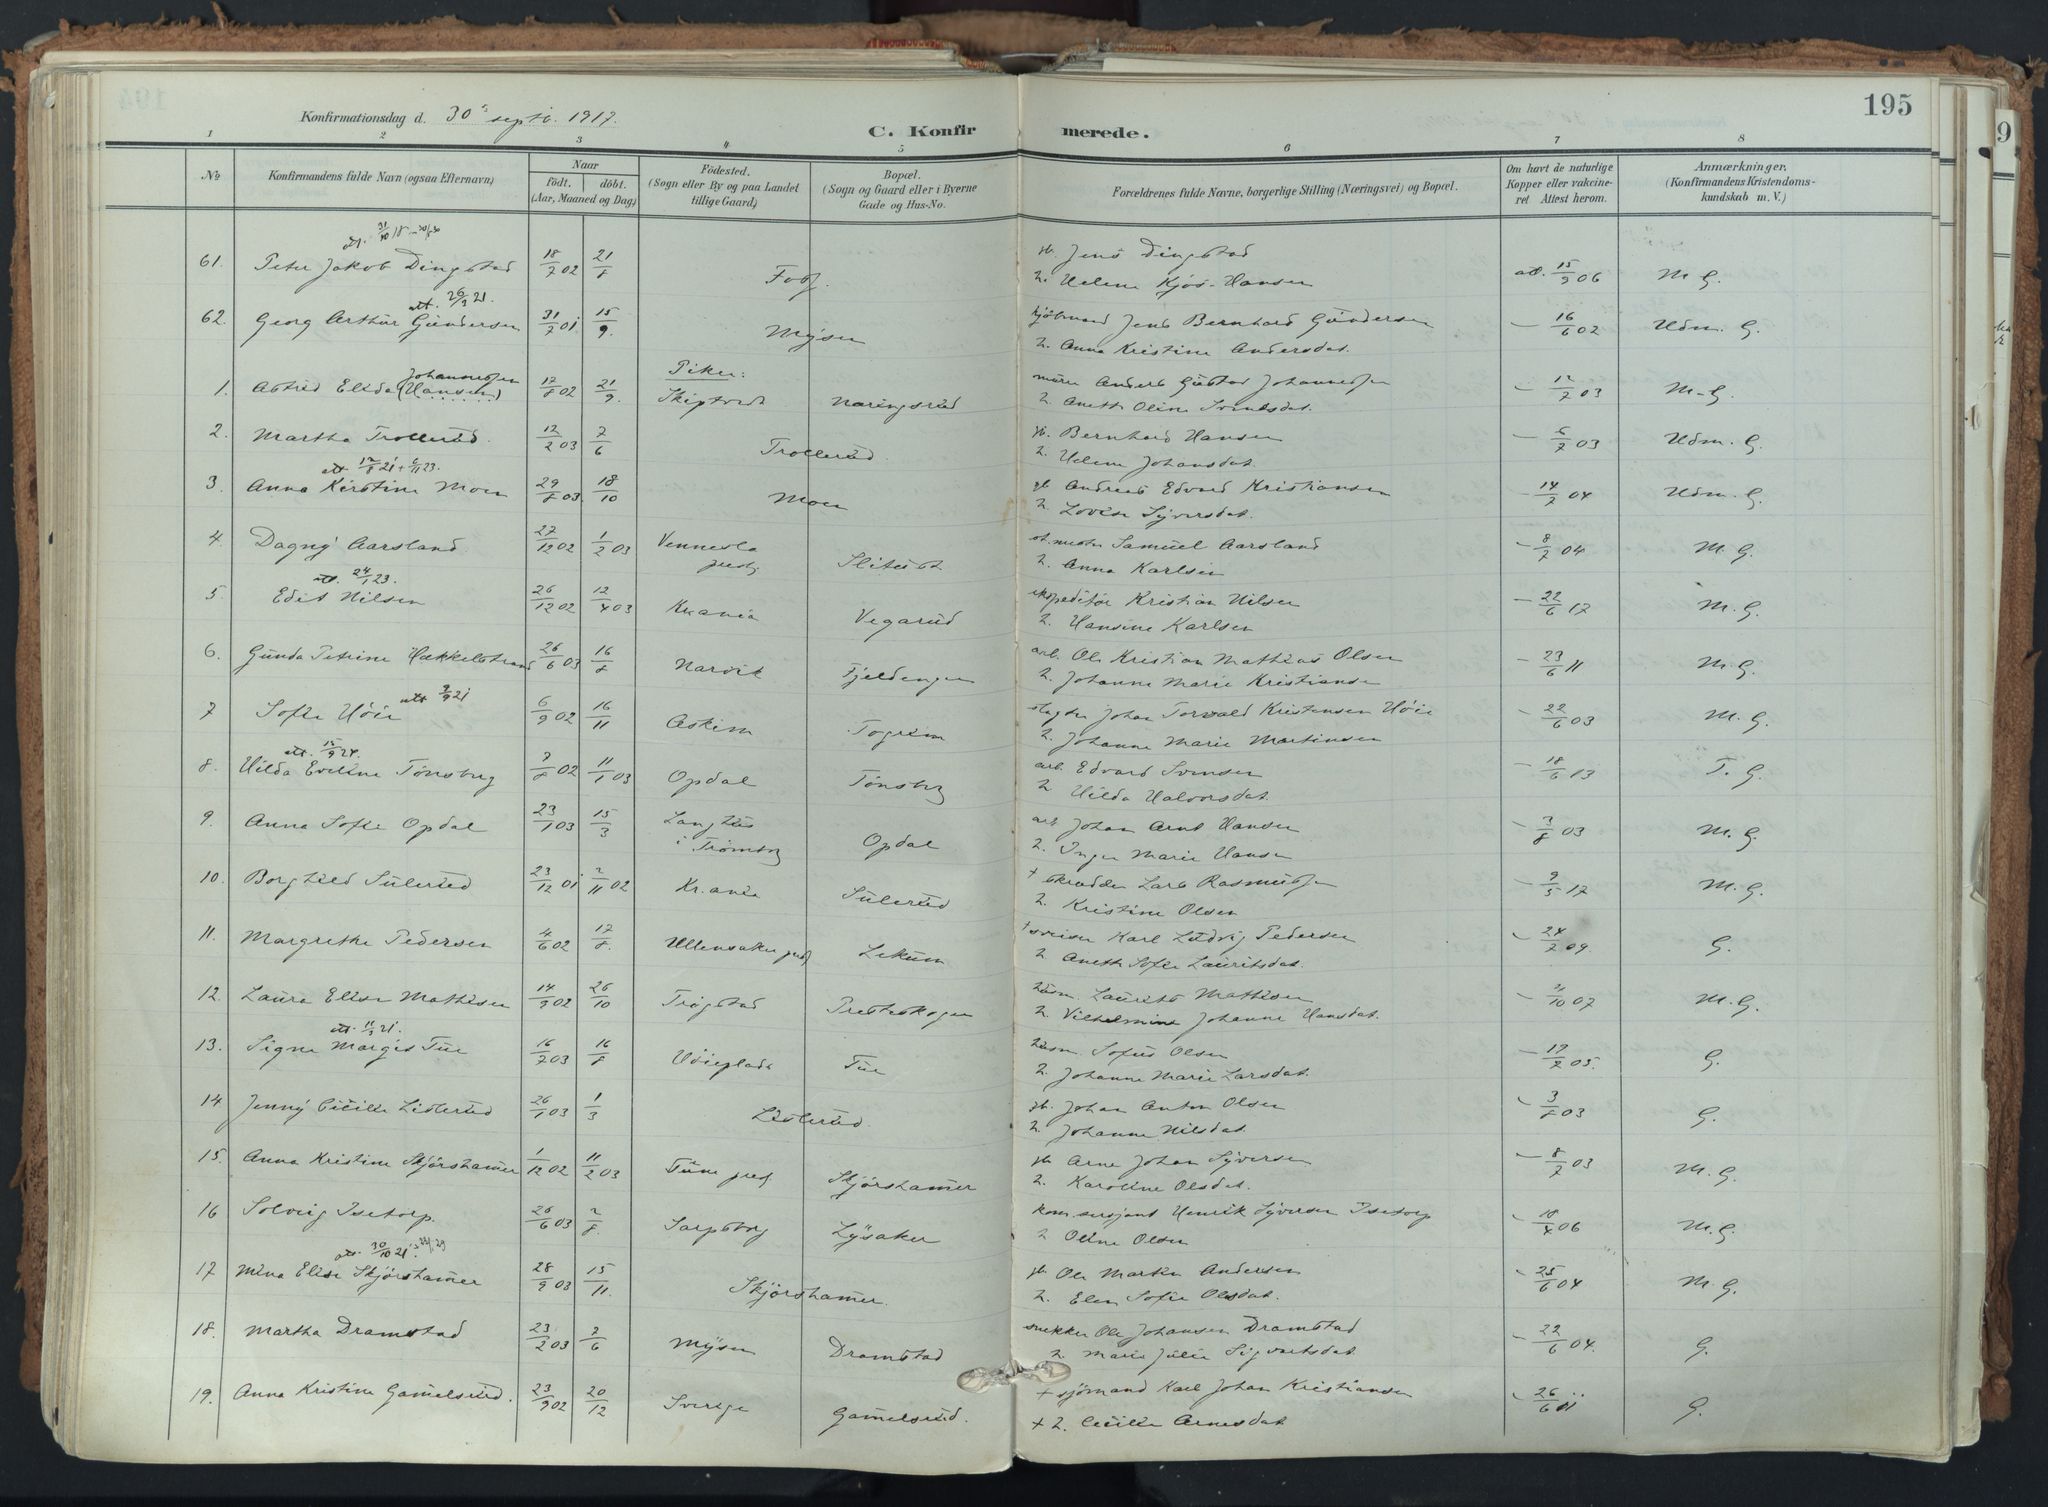 195
Konfirmationsdag d. 30 septb. 1917.
C. Konfirmerede.
1 2 3 4 5 6 7 8
No
Konfirmandens fulde Navn (ogsaa Efternavn)
Naar
födt. döbt.
(Aar, Maaned og Dag)
Födested.
(Sogn eller By og paa Landet
tillige Gaard)
Bopæl.
(Sogn og Gaard eller i Byerne
Gade og Hus-No.
Forældrenes fulde Navne, borgerlige Stilling (Næringsvei) og Bopæl.
Om havt de naturlige
Kopper eller vakcine-
ret Attest herom.
Anmærkninger.
(Konfirmandens Kristendoms-
kundskab m. V.)
att. 31/10 18
61. Peter Jakob Dingstad 18/7 02 21/8 gb. Jens Dingstad att. 15/9 06 M G.
H. Helene Kjös-Hansen
att. 26/3 21.
62. Georg Arthur Gundersen 31/7 01 15/9. Mysen Jens Bernhard Gundersen – 16/6 02 Udm. G.
H. Anna Kristine Andersdat.
Piker:
Johannessen
1. Astrid Elida (Hansen) 17/8 02 21/9. Skiptvedt Næringsrud murer Anders Gustav Johannessen – 12/7 03 M–G.
H. Anette Oline
2. Martha Trollerud. 12/2 03 7/6 Trollerud. gb. Bernhard Hansen – 6/7 03 Udm. G.
H. Helene Johansdat.
att. 12/8 21 + 6/11 23.
3. Anna Kirstine Moen 29/8 03 18/10 Moen gb Andreas Edvard Kristiansen – 14/7 04 Udm. G.
H. Lovise Syversdat.
4. Dagny Aarsland 27/12 02 1/2 03 Vennesla prestg. Slitust. Samuel Aarsland – 8/7 04 M. G.
H. Anna Karlsen
att. 24/1 23.
5. Edit Nilsen 26/12 02 12/4 03 Kr.ania Vegarud ekspeditör Kristian Nilsen – 22/6 17 M. G.
H. Hansine Karlsen
6. Gunda Petrine Hækkelstrand 26/6 03 16/8 Narvik Fjeldengen arb. Ole Kristian Mathias Olsen – 23/6 11 M. G.
H. Johanne Marie Kristiansen
att. 9/9 21
7 Sofie Höie 6/9 02 16/11 Askim Togrim Johan Torvald Kristensen Höie – 22/6 03 M. G.
H. Johanne Marie Martinsen
att. 15/9 24.
8. Hilda Eveline Tönsberg 7/8 02 11/1 03 Opdal Tönsberg arb. Edvard Svensen – 18/6 13 T. G.
H. Hilda Halvorsdat.
9. Anna Sofie Opdal 23/1 03 15/3 Langhus Opdal arb Johan Arnt Hansen – 3/8 03 M. G.
i Tromsö H. Inger Marie Hansen
10. Borghild Sulerud 23/12 01 2/11 02 Kr.ania Sulerud + skrædder Lars Rasmussen – 9/5 17 M. G.
H. Kristine Olsen
11. Margrethe Pedersen 4/6 02 17/8. Ullensaker prestg Lekum + sveiser Karl Ludvig Pedersen – 24/7 09. G.
H. Anette Sofie Lauritsdat.
12. Laura Elise Mathisen 14/9 02 26/10 Trögstad Presteskogen husm. Laurits Mathisen – /10 07 M. G.
H. Vilhelmine Johanne Hansdat.
att. 11/3 21
13. Signe Margit Tue 16/7 03 16/8 Höieplads Tue husm. Sofus Olsen – 17/7 05. G.
H. Johanne Marie Larsdat.
14 Jenny Cecilie Listerud 26/1 03 1/3 Listerud. gb. Johan Anton Olsen – 3/8 03 G.
H. Johanne Nilsdat.
15. Anna Kristine Skjörshamer 1/12 02 11/2 03 Tune prestg Skjörshamer gb Arne Johan Syversen – 8/7 03 M. G.
H. Karoline Olsdat.
16 Solveig Isetorp. 26/6 03 2/8. Sarpsborg Lysaker kom.sersjant Henrik Syversen Isetorp – 18/4 06 M. G.
H Oline Olsen
att. 30/10 21
17 Mina Elise Skjörshamer 28/9 03 15/11. Skjörshamer. gb. Ole Martin Andersen – 25/6 04 M. G.
H. Elen Sofie Olsdat.
18. Martha Dramstad 23/2 03 7/6 Mysen Dramstad snekker Ole Johansen Dramstad – 22/6 04. G.
H. Marie Julie Sigvartsdat.
19. Anna Kristine Gamelsrud. 23/9 02 20/12 Sverige Gamelsrud. + sjömand Karl Johan Kristiansen – 26/6 11 G.
+ H. Cecilie Arnesdat